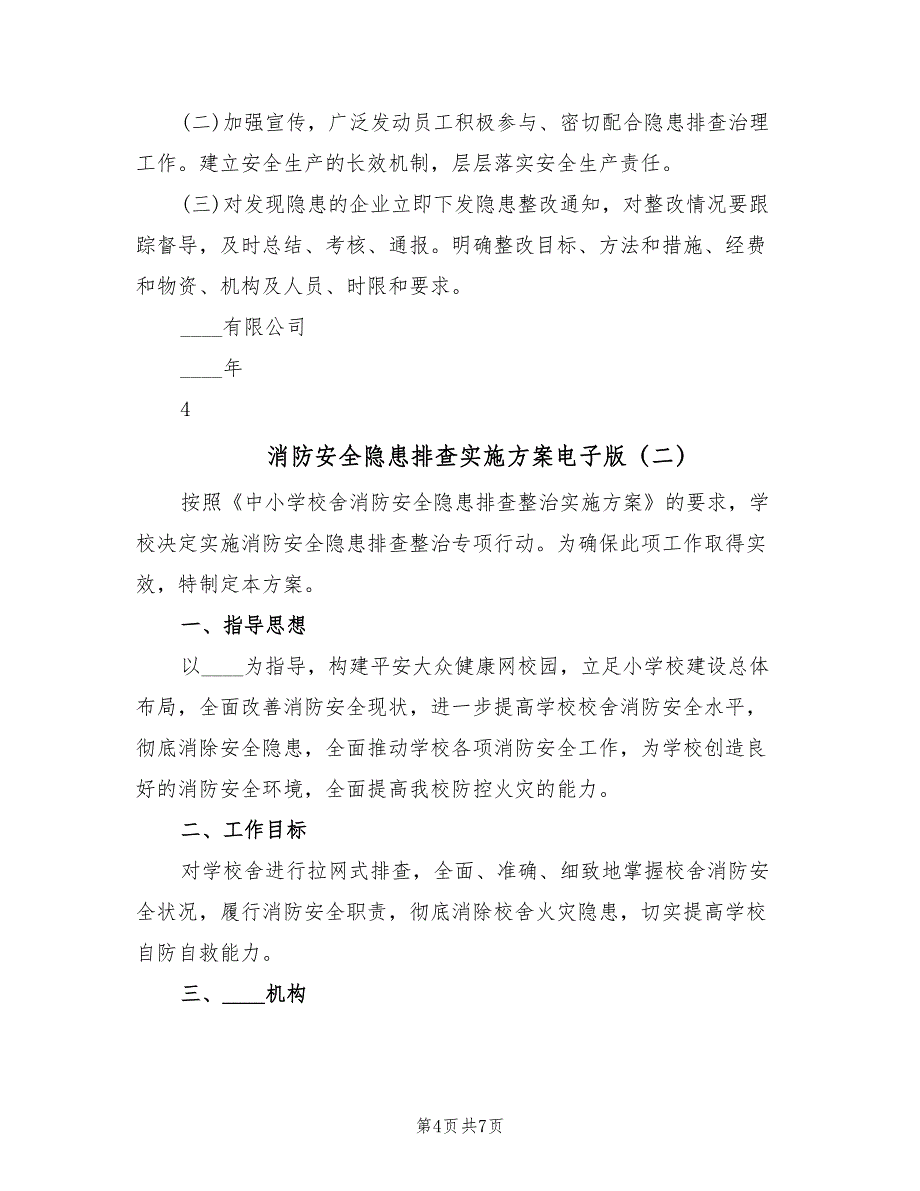 (二)加强宣传，广泛发动员工积极参与、密切配合隐患排查治理
工作。建立安全生产的长效机制，层层落实安全生产责任。
(三)对发现隐患的企业立即下发隐患整改通知，对整改情况要跟
踪督导，及时总结、考核、通报。明确整改目标、方法和措施、经费
和物资、机构及人员、时限和要求。
____有限公司
____年
4
消防安全隐患排查实施方案电子版（二）
按照《中小学校舍消防安全隐患排查整治实施方案》的要求，学
校决定实施消防安全隐患排查整治专项行动。为确保此项工作取得实
效，特制定本方案。
一、指导思想
以____为指导，构建平安大众健康网校园，立足小学校建设总体
布局，全面改善消防安全现状，进一步提高学校校舍消防安全水平，
彻底消除安全隐患，全面推动学校各项消防安全工作，为学校创造良
好的消防安全环境，全面提高我校防控火灾的能力。
二、工作目标
对学校舍进行拉网式排查，全面、准确、细致地掌握校舍消防安
全状况，履行消防安全职责，彻底消除校舍火灾隐患，切实提高学校
自防自救能力。
三、____机构
第4页 共7页